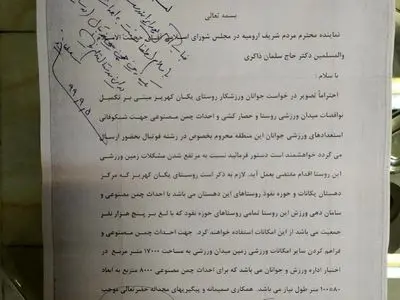 بسمه تعالی
نماینده محترم مردم شریف ارومیه در مجلس شورای اسلامی
والمسلمین دکتر حاج سلمان ذاکری
با سلام :
احتراماً تصویر در خواست جوانان ورزشکار روستای یکان کهریز مبنی بر تکمیل
نواقصات میدان ورزشی روستا و حصار کشی و احداث چمن مصنوعی جهت شکوفائی
استعدادهای ورزشی جوانان این منطقه محروم بخصوص در رشته فوتبال بحضور ارسال
می گردد خواهشمند است دستور فرمائید نسبت به مرتفع شدن مشکلات زمین ورزشی
این روستا اقدام مقتضی بعمل آید. لازم به ذکر است روستای یکان کهریز که مرکز
دهستان یکانات و حوزه نفوذ روستاهای این دهستان می باشد با احداث چمن مصنوعی و
سامان دهی ورزش این روستا تمامی روستاهای حوزه نفوذ که با لغ بر پنج هزار نفر
جمعیت می باشد از این امکانات استفاده خواهند کرد. جهت احداث چمن مصنوعی و
فراهم کردن سایر امکانات ورزشی زمین میدان ورزشی به مساحت ۱۷۰۰۰ متر مربع در
اختیار اداره ورزش و جوانان می باشد که برای احداث چمن مصنوعی ۸۰۰۰ متربع به ابعاد
۸۰*۱۰۰ متر طول نیاز می باشد. همکاری صمیمانه و پیگیریهای مجدانه حضرتعالی موجب
۹۹.۹.۵